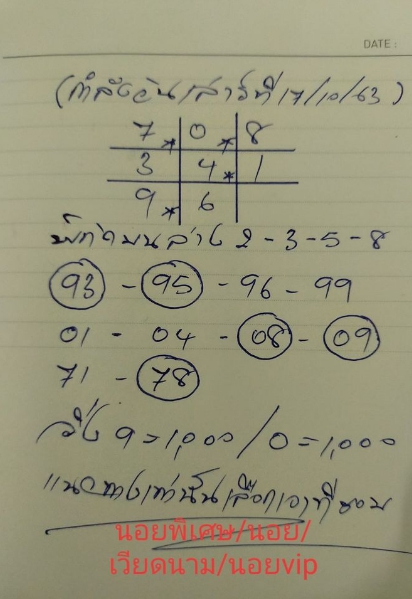 DATE :
(กำลังวันเสาร์ที่ 17/10/63)
7 * 0 * 8
3 4 * 1
9 * 6
บนล่าง 2-3-5-8
93 - 95 - 96 - 99
01 - 04 - 08 - 09
71 - 78
วิ่ง 9=1,000 / 0=1,000
แนวทางเท่านั้นเลือกเอาที่ชอบ
นอยพิเศษ/นอย/
เวียดนาม/นอยvip